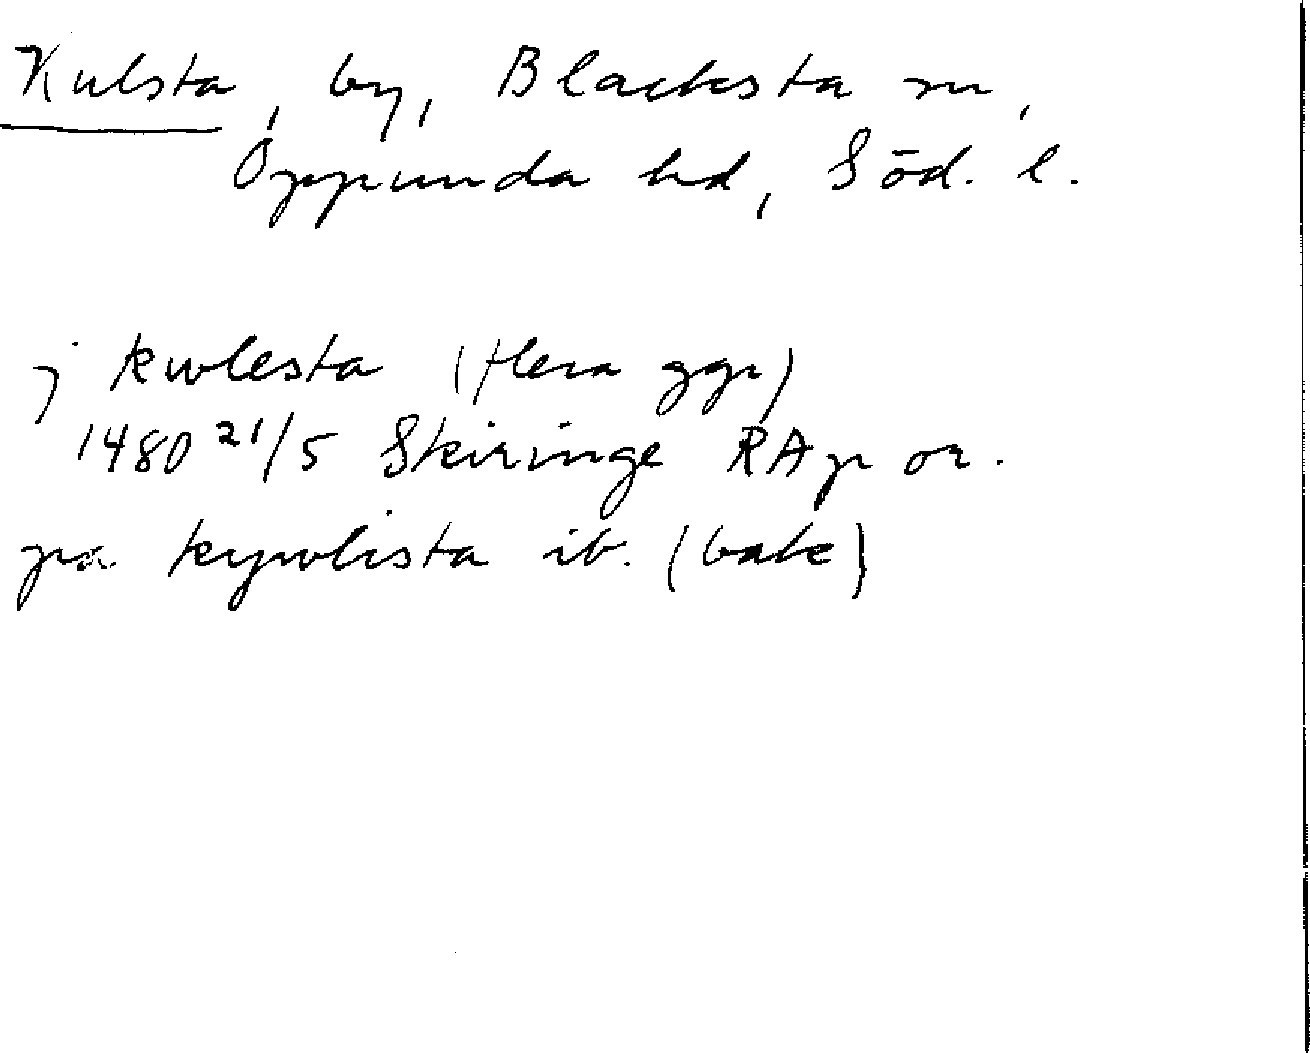 Kulsta, by, Blacksta sn,
Oppunda hd, Söd. l.
j kwlesta (flera ggr)
1480 21/5 Skiringe RAp or.
pa kywlista ib. (bak)